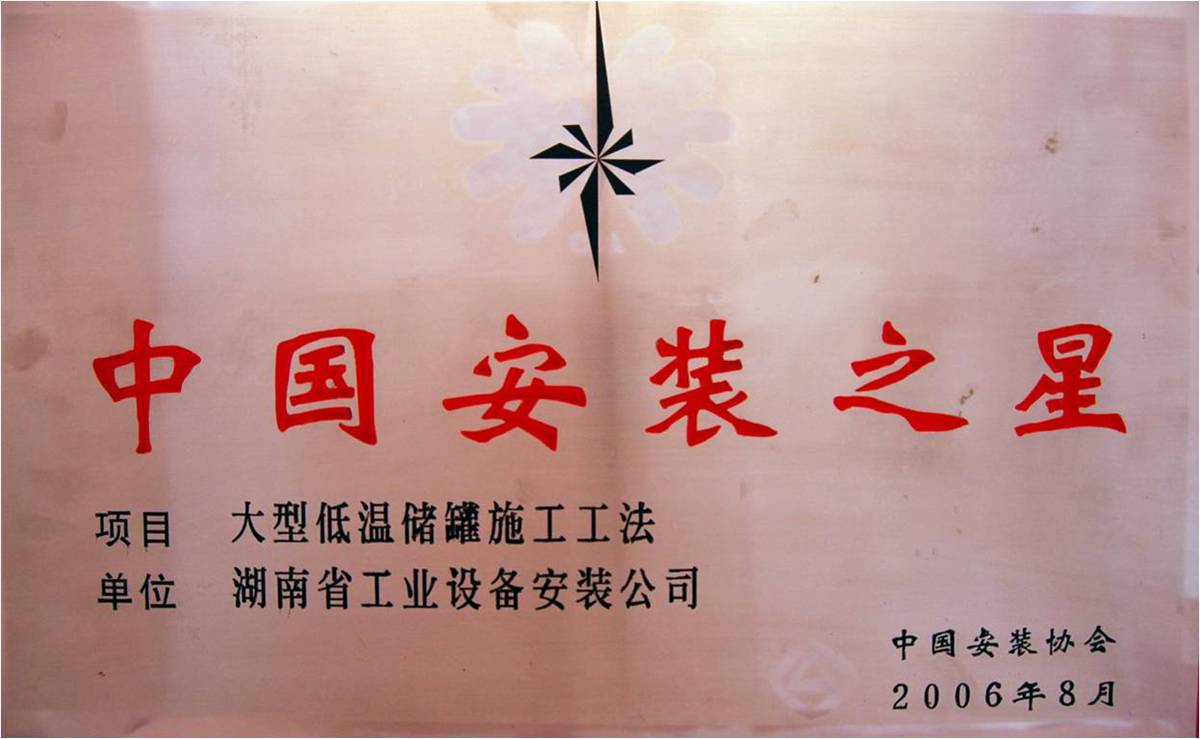 中国安装之星
项目 大型低温储罐施工工法
单位 湖南省工业设备安装公司
中国安装协会
2006年8月